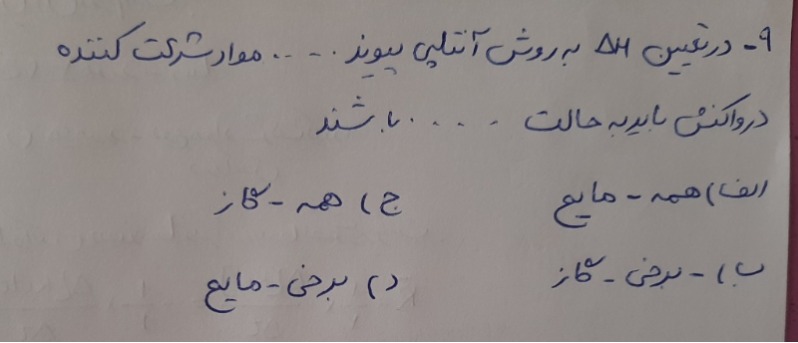 ۹- در تعیین ΔH به روش آنتالپی پیوند ..... مواد شرکت کننده
در واکنش باید به حالت ..... باشند
الف) همه - مایع ج) همه - گاز
ب) - برخی - گاز د) برخی - مایع